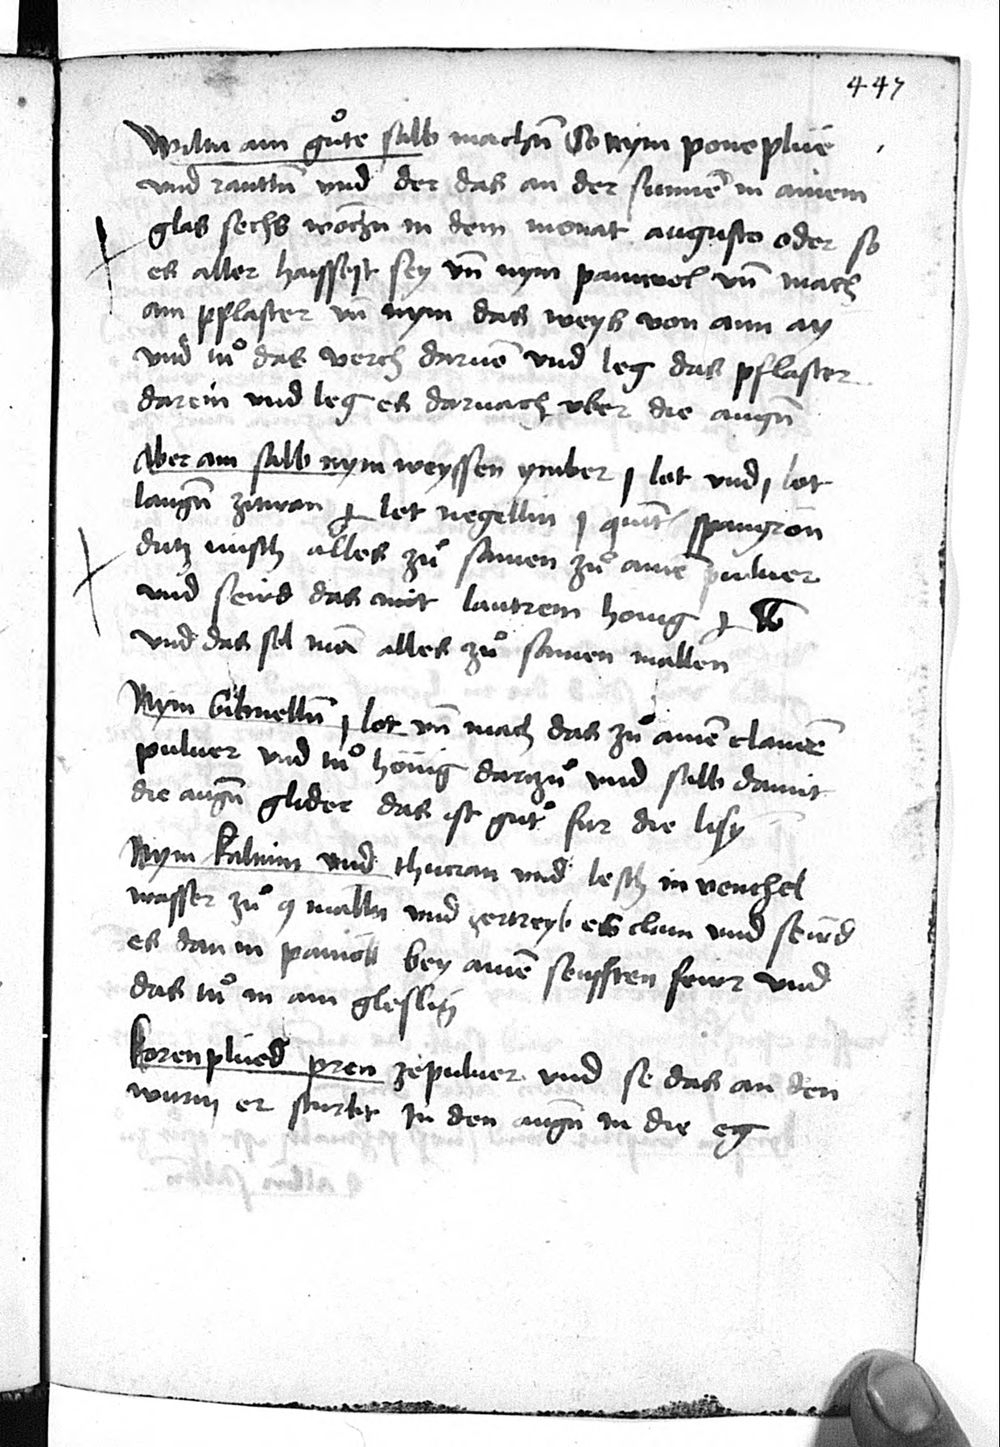 447
Wiltu ain gůte salb machñ So nym poneplüe
vnd rauttñ vnd der das an der sunnē in ainem
glas sechs wochn in dem monat augusto oder so
es aller haissist sey vñ nym pamwol vñ mach
ain pflaster vñ nym das weys von aim ay
vnd tů das verch darnē vnd leg das pflaster
darein vnd leg es darnach vber die augñ
Aber ain salb nym weyssen ymber j lot vnd j lot
langñ zitwan lot negellin j quīt spangrön
dutz misch alles zů samen zů ainē puluer
vnd seud das mit lautrem honig
vnd das sol mā alles zů samen mallen
Nym j lot vñ mach das zů ainē clainē
puluer vnd tů hönig darzů vnd salb damit
die augñ glider das ist gůt fur die lisy
Nym kalmin vnd thucian vnd lesch in venchel
wasser zů 9 malln vnd zertreyb es clain vnd seud
es dan in bey ainē senfften feur vnd
das tů in ain gleslin
Korenplüed pren zepuluer vnd se das an den
wurm er stirbt in den augñ in die eg